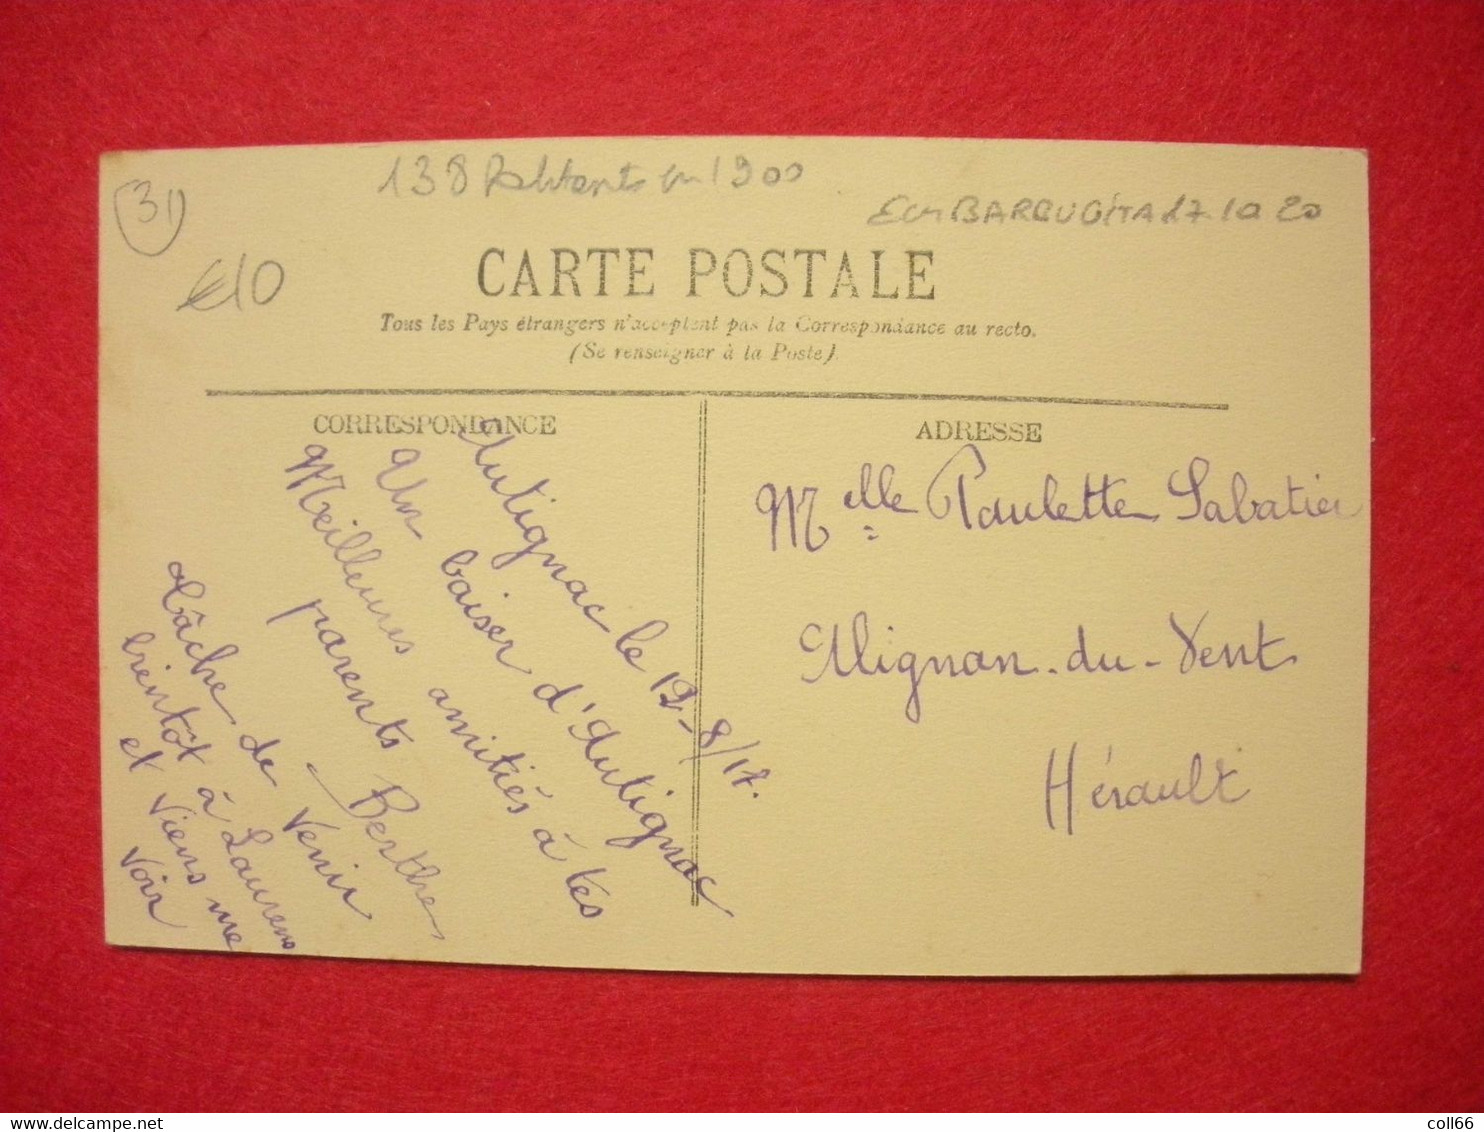 138 habitants en 1900
31
€10
CARTE POSTALE
Tous les Pays étrangers n'acceptent pas la Correspondance au recto.
(Se renseigner à la Poste).
CORRESPONDANCE
ADRESSE
Autignac le 12-8/17.
Un baiser d'Autignac
Meilleures amitiés à tes
parents Berthe
Tâche de venir
bientôt à Laurens
et viens me
voir
Melle Paulette Sabatier
Magnan-du-Vent
Hérault
delcampe.net
coll66